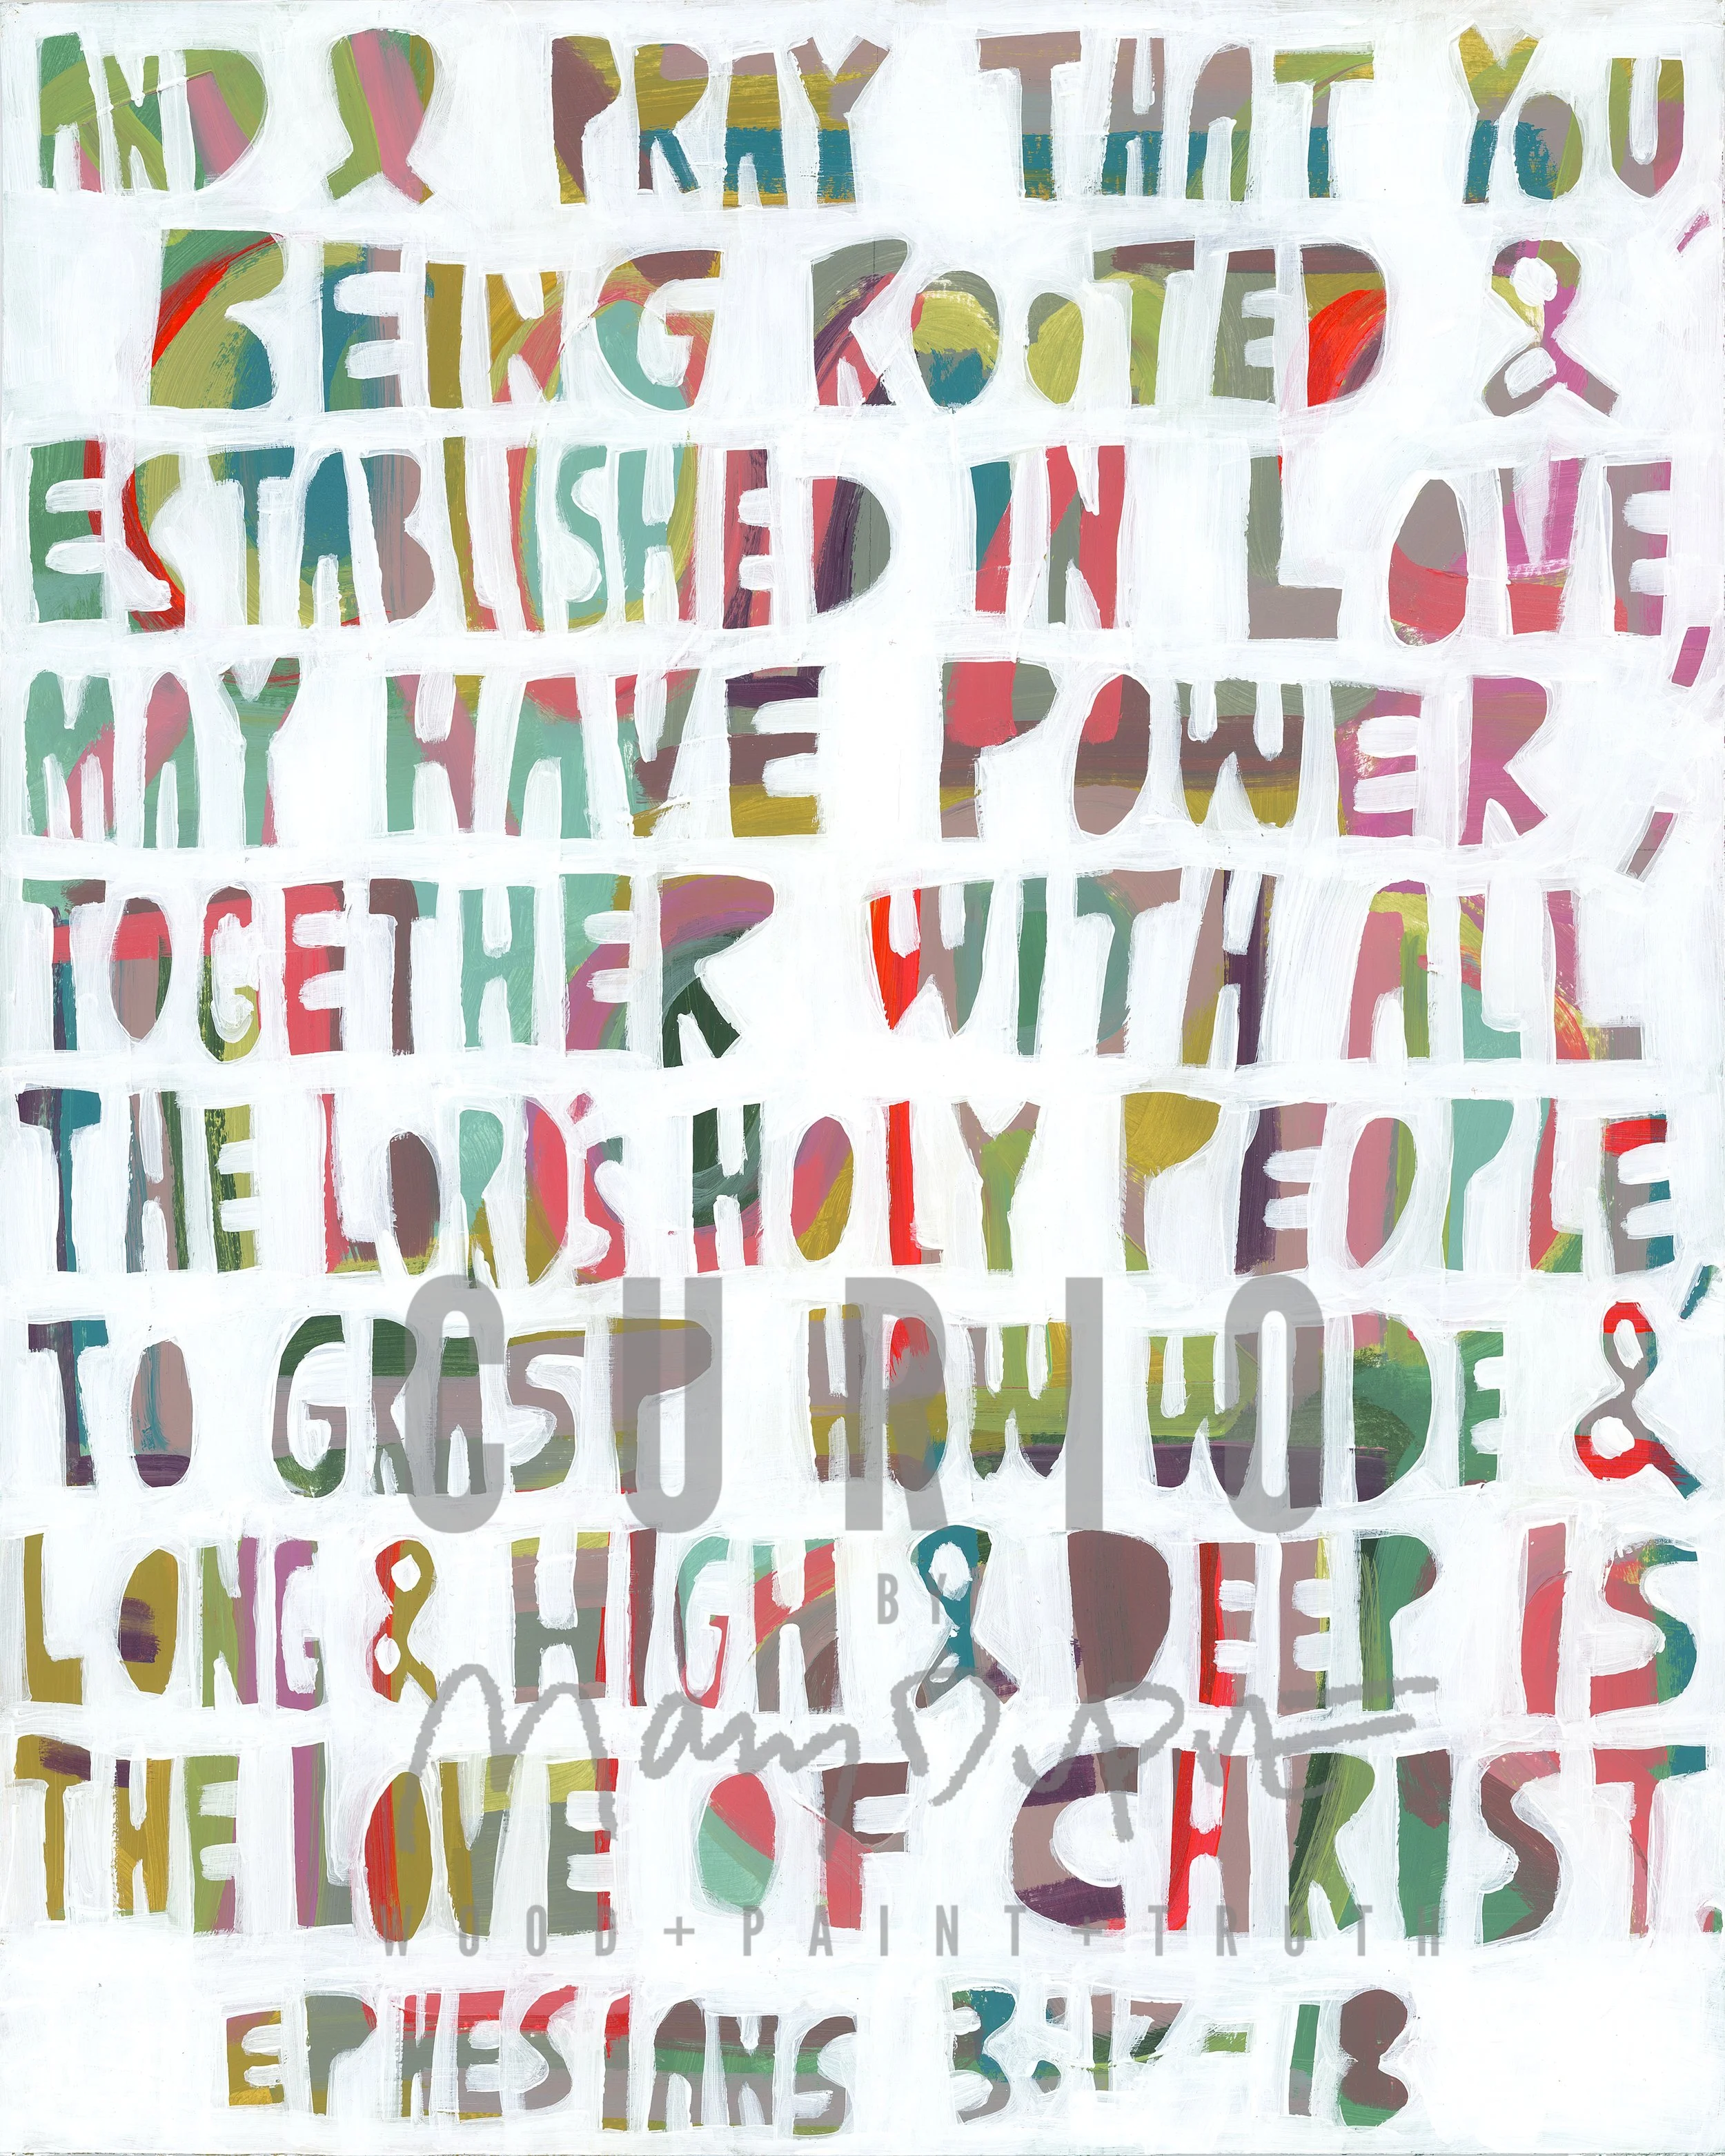 AND & PRAY THAT YOU,
BEING ROOTED &
ESTABLISHED IN LOVE,
MAY HAVE POWER,
TOGETHER WITH ALL
THE LORD'S HOLY PEOPLE,
TO GRASP HOW WIDE &
LONG & HIGH & DEEP IS
THE LOVE OF CHRIST.
EPHESIANS 3:17-18
CURIO
BY
Mary
WOOD+PAINT+TRUTH